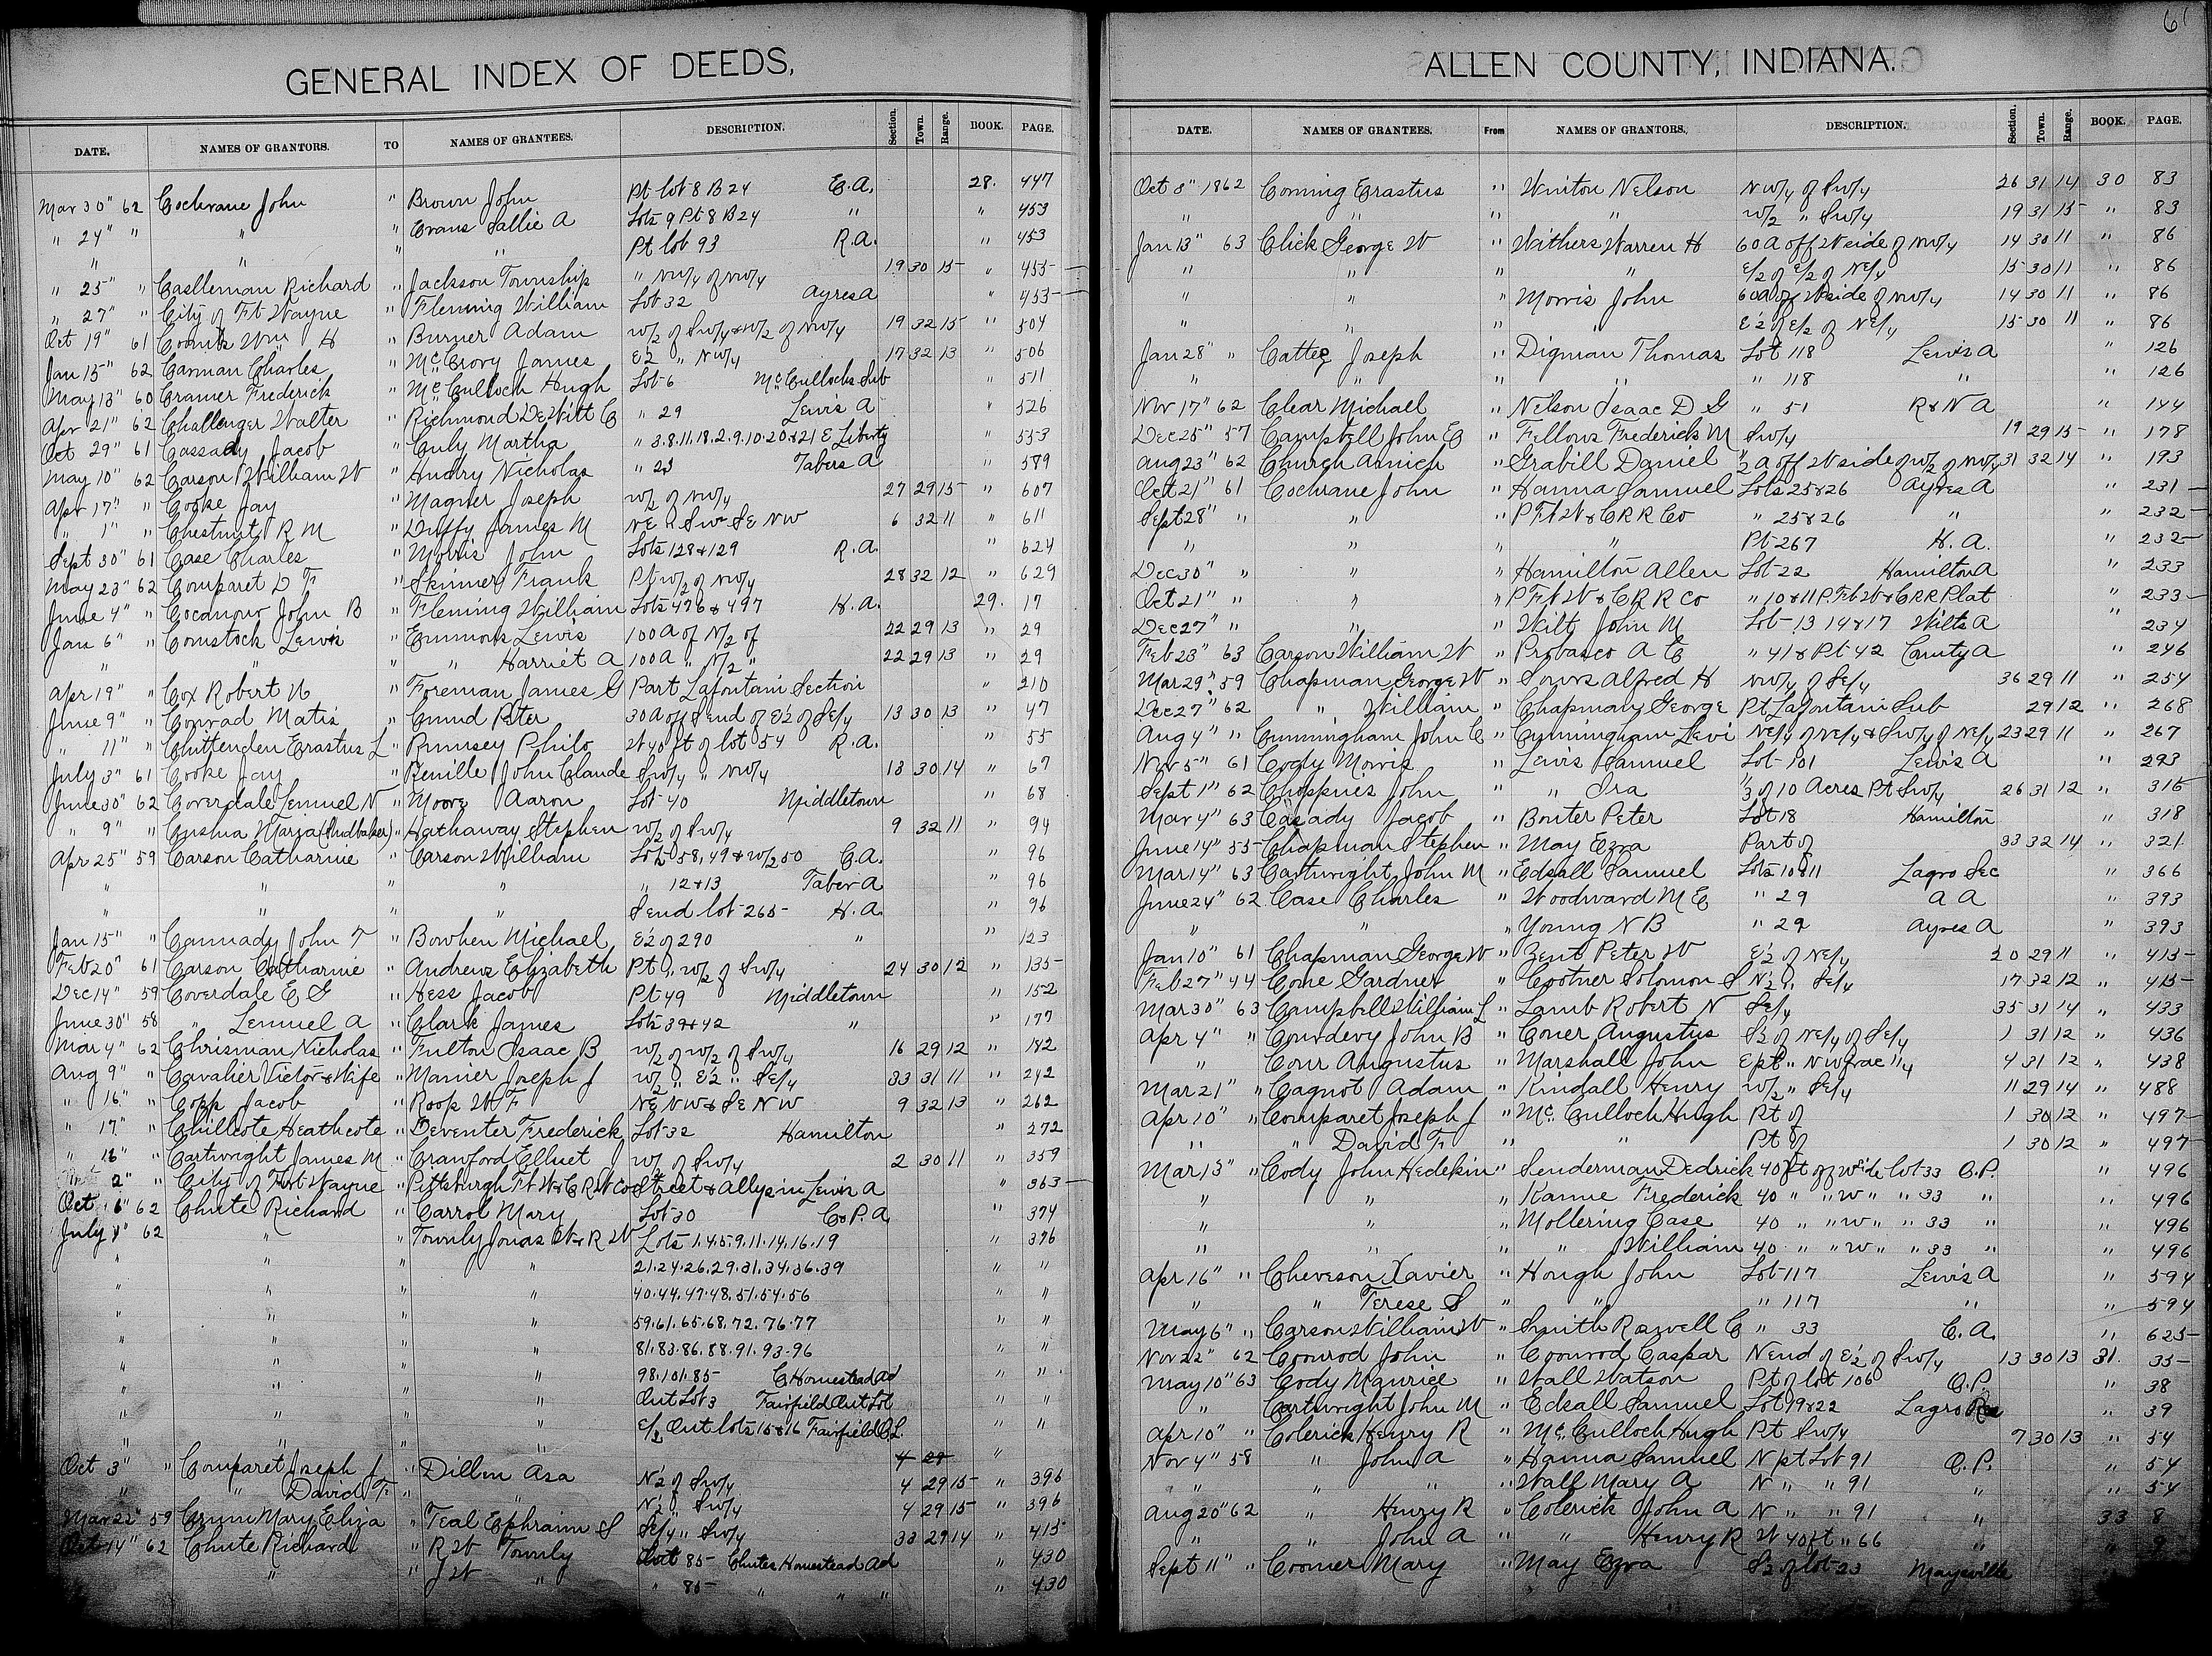 61
GENERAL INDEX OF DEEDS,
DATE. NAMES OF GRANTORS. TO NAMES OF GRANTEES. DESCRIPTION. Section. Town. Range. BOOK. PAGE.
Mar 30" 62 Cochrane John " Brown John Pt lot 8 B 24 C.A. 28. 447
" 24" " " " Evans Sallie A Lots 9 Pt 8 B 24 " " 453
" " " " Pt lot 93 R.A. " 453
" 25" " Castleman Richard " Jackson Township " NW/4 of NW/4 19 30 15 " 455
" 27" " City of Ft Wayne " Fleming William Lot 32 Ayres A " 453
Oct 19" 61 Comits Wm H " Burner Adam W/2 of SW/4 & W/2 of NW/4 19 32 15 " 504
Jan 15" 62 Carman Charles " McCrory James E½ " NW/4 17 32 13 " 506
May 13" 60 Cramer Frederick " McCulloch Hugh Lot 6 McCullochs Sub " 511
Apr 21" 62 Challenger Walter " Richmond DeWitt C " 29 Lewis A " 526
Oct 29" 61 Cassady Jacob " Culy Martha " 3.8.11.18.2.9.10.20.&21 E Liberty " 553
May 10" 62 Carson William W " Hudry Nicholas " 23 Tabers A " 589
Apr 17" " Cooke Jay " Magner Joseph W/2 of NW/4 27 29 15 " 607
" 1" " Chestnut R M " Duffy James M NE & SW SE NW 6 32 11 " 611
Sept 30" 61 Case Charles " Morris John Lots 128 & 129 R.A. " 624
May 23" 62 Comparet D F " Skinner Frank Pt W/2 of NW/4 28 32 12 " 629
June 4" " Cocanour John B " Fleming William Lots 496 & 497 H.A. 29. 17
Jan 6" " Comstock Lewis " Emmons Lewis 100 A of N/2 of 22 29 13 " 29
" " " " Harriet A 100 A " N/2 " 22 29 13 " 29
Apr 19" " Cox Robert N " Foreman James G Part Lafontain Section " 210
June 9" " Conrad Matis " Cund Peter 30 A off S end of E½ of SE/4 13 30 13 " 47
" 11" " Chittenden Erastus L " Rumsey Philo W 40 ft of lot 54 R.A. " 55
July 3" 61 Cooke Jay " Reuille John Claude SW/4 " NW/4 18 30 14 " 67
June 30" 62 Coverdale Lemuel N " Moore Aaron Lot 40 Middletown " 68
" 9" " Cushia Maria (Studbaker) " Hathaway Stephen W/2 of SW/4 9 32 11 " 94
Apr 25" 59 Carson Catharine " Carson William Lots 58, 49 & W/2 50 C.A. " 96
" " " " " 12 & 13 Taber A " 96
" " " " S end lot 265 H.A. " 96
Jan 15" " Cannady John T " Bowhen Michael E½ of 290 " " 123
Feb 20" 61 Carson Catharine " Andrews Elizabeth Pt " W/2 of SW/4 24 30 12 " 135
Dec 14" 59 Coverdale E G " Hess Jacob Pt 49 Middletown " 152
June 30" 58 " Lemuel A " Clark James Lots 39 & 42 " " 177
Mar 4" 62 Chrisman Nicholas " Fulton Isaac B W/2 of W/2 of SW/4 16 29 12 " 182
Aug 9" " Cavalier Victor & Wife " Manier Joseph J W/2 " E½ " SE/4 33 31 11 " 242
" 16" " Copp Jacob " Roop W F NE NW & SE NW 9 32 13 " 262
" 17" " Chillcote Heathcote " Deventer Frederick Lot 32 Hamilton " 272
" 18" " Cartwright James M " Crawford Elluet W/2 of SW/4 2 30 11 " 359
2" " City of Fort Wayne " Pittsburgh Ft W & C R W Co Street & Allys in Lewis A " 363
Oct 6" 62 Chute Richard " Carrol Mary Lot 30 Co P. A. " 374
July 8" 62 " " Townly Jonas W & R W Lots 1.4.5.9.11.14.16.19 " 376
" " " 21.24.26.29.31.34.36.39 " "
" " " 40.44.47.48.51.54.56 " "
" " " 59.61.65.68.72.76.77 " "
" " " 81.83.86.88.91.93.96 " "
" " " 98.101.85 C Homestead Ad " "
" " " Out Lot 3 Fairfield Out Lot " "
" " " E/2 Out lots 15 & 16 Fairfield O.L. " "
Oct 3" " Comparet Joseph J " Dillon Asa N½ of SW/4 4 29 15 " 396
" " David F " " N½ " SW/4 4 29 15 " 396
Mar 22" 59 Crum Mary Eliza " Teal Ephraim S SE/4 " SW/4 33 29 14 " 415
Oct 14" 62 Chute Richard " R W Townly Lot 85 Chutes Homestead Ad " 430
" " J W " " 85 " " " " 430
ALLEN COUNTY, INDIANA.
DATE. NAMES OF GRANTEES. From NAMES OF GRANTORS. DESCRIPTION. Section. Town. Range. BOOK. PAGE.
Oct 8" 1862 Corning Erastus " Winton Nelson NW/4 of SW/4 26 31 14 30 83
" " " " W/2 " SW/4 19 31 15 " 83
Jan 13" 63 Click George W " Withers Warren H 60 A off W side of NW/4 14 30 11 " 86
" " " " E/2 of E/2 of NE/4 15 30 11 " 86
" " " Morris John 60 A off W side of NW/4 14 30 11 " 86
" " " " E½ of E/2 of NE/4 15 30 11 " 86
Jan 28" " Catteg Joseph " Digman Thomas Lot 118 Lewis A " 126
" " " " " 118 " " 126
Nov 17" 62 Clear Michael " Nelson Isaac D G " 51 R & N A " 144
Dec 25" 57 Campbell John C " Fellows Frederick M SW/4 19 29 15 " 178
Aug 23" 62 Church Amich " Grabill Daniel ½ A off W side of W/2 of NW/4 31 32 14 " 193
Oct 21" 61 Cochrane John " Hanna Samuel Lots 25 & 26 Ayres A " 231
Sept 28" " " " P Ft W & C R R Co " 25 & 26 " " 232
" " " " Pt 267 H.A. " 232
Dec 30" " " " Hamilton Allen Lot 22 Hamilton A " 233
Oct 21" " " " P Ft W & C R R Co " 10 & 11 P. Ft W & C R R Plat " 233
Dec 27" " " " Wilt John M Lot 13 14 & 17 Wilts A " 234
Feb 23" 63 Carson William W " Probasco A C " 41 & Pt 42 County A " 246
Mar 29" 59 Chapman George W " Sours Alfred H NW/4 of SE/4 36 29 11 " 254
Dec 27" 62 " William " Chapman George Pt Lafontain Sub 29 12 " 268
Aug 4" " Cunningham John C " Cunningham Levi NE/4 of NE/4 & SW/4 of NE/4 23 29 11 " 267
Nov 5" 61 Cogly Morris " Lewis Samuel Lot 101 Lewis A " 293
Sept 1" 62 Choppnes John " " Ira ⅓ of 10 Acres Pt SW/4 26 31 12 " 315
Mar 4" 63 Casady Jacob " Bouter Peter Lot 18 Hamilton " 318
June 14" 55 Chapman Stephen " May Ezra Part of 33 32 14 " 321
Mar 14" 63 Cartwright John M " Edsall Samuel Lots 10 & 11 Lagro Sec " 366
June 24" 62 Case Charles " Woodward M E " 29 A A " 393
" " " Young N B " 29 Ayres A " 393
Jan 10" 61 Chapman George W " Zent Peter W E½ of NE/4 20 29 11 " 413
Feb 27" 44 Cone Gardner " Cootner Solomon S N½ " SE/4 17 32 12 " 415
Mar 30" 63 Campbell William L " Lamb Robert N SE/4 35 31 14 " 433
Apr 4" " Courdevy John B " Coner Augustus S½ of NE/4 of SE/4 1 31 12 " 436
" Cour Augustus " Marshall John E pt " NW frac 1/4 4 31 12 " 438
Mar 21" " Cagnot Adam " Kindall Henry W/2 " SE/4 11 29 14 " 488
Apr 10" " Comparet Joseph J " McCulloch Hugh Pt of 1 30 12 " 497
" " " David F " " Pt of 1 30 12 " 497
Mar 13" " Cody John Hedekin " Senderman Dedrick 40 ft off W side lot 33 O.P. " 496
" " " Kanne Frederick 40 " " W " " 33 " " 496
" " " Mollering Case 40 " " W " " 33 " " 496
" " " " William 40 " " W " " 33 " " 496
Apr 16" " Cheveson Xavier " Hough John Lot 117 Lewis A " 594
" " Terese S " " " 117 " " 594
May 6" " Carson William W " Smith Roswell C " 33 C.A. " 625
Nov 22" 62 Conrod John " Coonrod Caspar N end of E½ of SW/4 13 30 13 31. 35
May 10" 63 Cody Maurice " Wall Watson Pt of lot 106 O.P. " 38
" Cartwright John M " Edsall Samuel Lot 19 & 22 Lagro Res " 39
Apr 10" " Colerick Henry R " McCulloch Hugh Pt SW/4 7 30 13 " 54
Nov 4" 58 " John A " Hanna Samuel N pt Lot 91 O.P. " 54
" " " Wall Mary A N " " 91 " 54
Aug 20" 62 " Henry R " Colerick John A N " " 91 " 33 8
" " John A " " Henry R W 40 ft " 66 " " 9
Sept 11" " Coomer Mary " May Ezra S½ of lot 23 Maysville